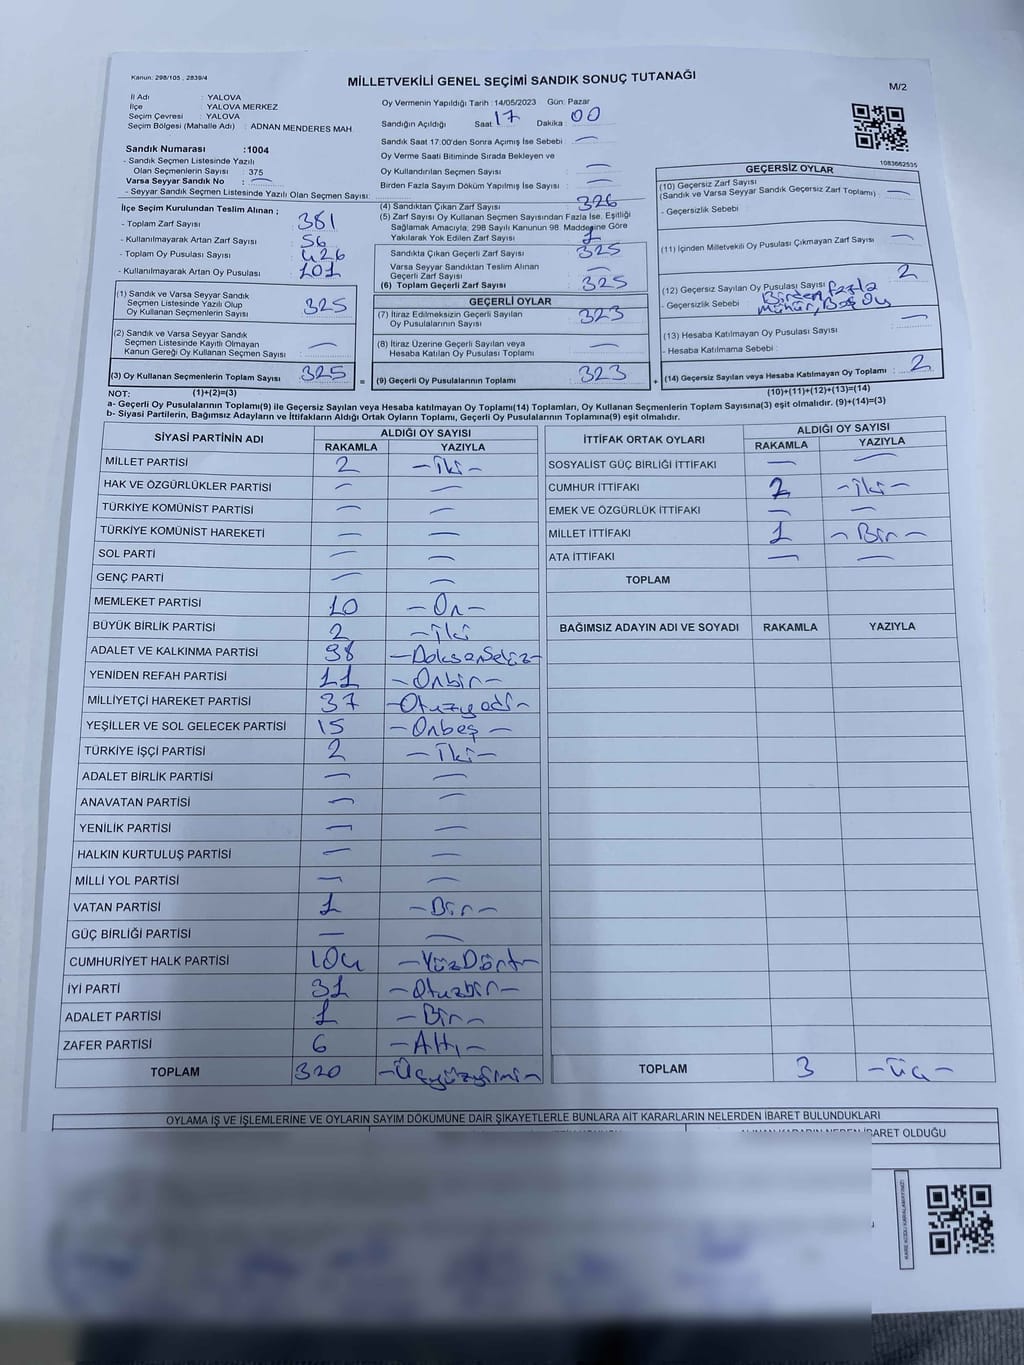 Kanun: 298/105 , 2839/4
MİLLETVEKİLİ GENEL SEÇİMİ SANDIK SONUÇ TUTANAĞI
M/2
İl Adı : YALOVA
İlçe : YALOVA MERKEZ
Seçim Çevresi : YALOVA
Seçim Bölgesi (Mahalle Adı) : ADNAN MENDERES MAH.
Oy Vermenin Yapıldığı Tarih :14/05/2023 Gün: Pazar
Sandığın Açıldığı Saat : 17 Dakika : 00
Sandık Saat 17:00'den Sonra Açımış İse Sebebi : —
Oy Verme Saati Bitiminde Sırada Bekleyen ve
Oy Kullandırılan Seçmen Sayısı : —
Birden Fazla Sayım Döküm Yapılmış İse Sayısı : —
Sandık Numarası :1004
- Sandık Seçmen Listesinde Yazılı
Olan Seçmenlerin Sayısı : 375
Varsa Seyyar Sandık No : —
- Seyyar Sandık Seçmen Listesinde Yazılı Olan Seçmen Sayısı:
İlçe Seçim Kurulundan Teslim Alınan ;
- Toplam Zarf Sayısı : 381
- Kullanılmayarak Artan Zarf Sayısı : 56
- Toplam Oy Pusulası Sayısı : 426
- Kullanılmayarak Artan Oy Pusulası : 101
(1) Sandık ve Varsa Seyyar Sandık
Seçmen Listesinde Yazılı Olup
Oy Kullanan Seçmenlerin Sayısı : 325
(2) Sandık ve Varsa Seyyar Sandık
Seçmen Listesinde Kayıtlı Olmayan
Kanun Gereği Oy Kullanan Seçmen Sayısı : —
(3) Oy Kullanan Seçmenlerin Toplam Sayısı : 325
(4) Sandıktan Çıkan Zarf Sayısı : 326
(5) Zarf Sayısı Oy Kullanan Seçmen Sayısından Fazla İse, Eşitliği
Sağlamak Amacıyla; 298 Sayılı Kanunun 98. Maddesine Göre
Yakılarak Yok Edilen Zarf Sayısı : 1
Sandıkta Çıkan Geçerli Zarf Sayısı : 325
Varsa Seyyar Sandıktan Teslim Alınan
Geçerli Zarf Sayısı : —
(6) Toplam Geçerli Zarf Sayısı : 325
GEÇERLİ OYLAR
(7) İtiraz Edilmeksizin Geçerli Sayılan
Oy Pusulalarının Sayısı : 323
(8) İtiraz Üzerine Geçerli Sayılan veya
Hesaba Katılan Oy Pusulası Toplamı : —
= (9) Geçerli Oy Pusulalarının Toplamı : 323 +
1083662535
GEÇERSİZ OYLAR
(10) Geçersiz Zarf Sayısı
(Sandık ve Varsa Seyyar Sandık Geçersiz Zarf Toplamı) : —
- Geçersizlik Sebebi :
(11) İçinden Milletvekili Oy Pusulası Çıkmayan Zarf Sayısı : —
(12) Geçersiz Sayılan Oy Pusulası Sayısı : 2
- Geçersizlik Sebebi : Birden fazla
mühür, Boş Oy
(13) Hesaba Katılmayan Oy Pusulası Sayısı : —
- Hesaba Katılmama Sebebi :
(14) Geçersiz Sayılan veya Hesaba Katılmayan Oy Toplamı : 2
NOT: (1)+(2)=(3)
(10)+(11)+(12)+(13)=(14)
a- Geçerli Oy Pusulalarının Toplamı(9) ile Geçersiz Sayılan veya Hesaba katılmayan Oy Toplamı(14) Toplamları, Oy Kullanan Seçmenlerin Toplam Sayısına(3) eşit olmalıdır. (9)+(14)=(3)
b- Siyasi Partilerin, Bağımsız Adayların ve İttifakların Aldığı Ortak Oyların Toplamı, Geçerli Oy Pusulalarının Toplamına(9) eşit olmalıdır.
SİYASİ PARTİNİN ADI ALDIĞI OY SAYISI
RAKAMLA YAZIYLA
MİLLET PARTİSİ 2 -İki-
HAK VE ÖZGÜRLÜKLER PARTİSİ — —
TÜRKİYE KOMÜNİST PARTİSİ — —
TÜRKİYE KOMÜNİST HAREKETİ — —
SOL PARTİ — —
GENÇ PARTİ — —
MEMLEKET PARTİSİ 10 -On-
BÜYÜK BİRLİK PARTİSİ 2 -İki
ADALET VE KALKINMA PARTİSİ 98 -DoksanSekiz-
YENİDEN REFAH PARTİSİ 11 -Onbir-
MİLLİYETÇİ HAREKET PARTİSİ 37 -Otuzyedi-
YEŞİLLER VE SOL GELECEK PARTİSİ 15 -Onbeş-
TÜRKİYE İŞÇİ PARTİSİ 2 -İki-
ADALET BİRLİK PARTİSİ — —
ANAVATAN PARTİSİ — —
YENİLİK PARTİSİ — —
HALKIN KURTULUŞ PARTİSİ — —
MİLLİ YOL PARTİSİ — —
VATAN PARTİSİ 1 -Bir-
GÜÇ BİRLİĞİ PARTİSİ — —
CUMHURİYET HALK PARTİSİ 104 -YüzDört-
İYİ PARTİ 31 -Otuzbir-
ADALET PARTİSİ 1 -Bir-
ZAFER PARTİSİ 6 -Altı-
TOPLAM 320 -Üçyüzyirmi-
İTTİFAK ORTAK OYLARI ALDIĞI OY SAYISI
RAKAMLA YAZIYLA
SOSYALİST GÜÇ BİRLİĞİ İTTİFAKI — —
CUMHUR İTTİFAKI 2 -İki-
EMEK VE ÖZGÜRLÜK İTTİFAKI — —
MİLLET İTTİFAKI 1 -Bir-
ATA İTTİFAKI — —
TOPLAM
BAĞIMSIZ ADAYIN ADI VE SOYADI RAKAMLA YAZIYLA
TOPLAM 3 -Üç-
OYLAMA İŞ VE İŞLEMLERİNE VE OYLARIN SAYIM DÖKÜMÜNE DAİR ŞİKAYETLERLE BUNLARA AİT KARARLARIN NELERDEN İBARET BULUNDUKLARI
ALINAN KARARIN NEDEN İBARET OLDUĞU